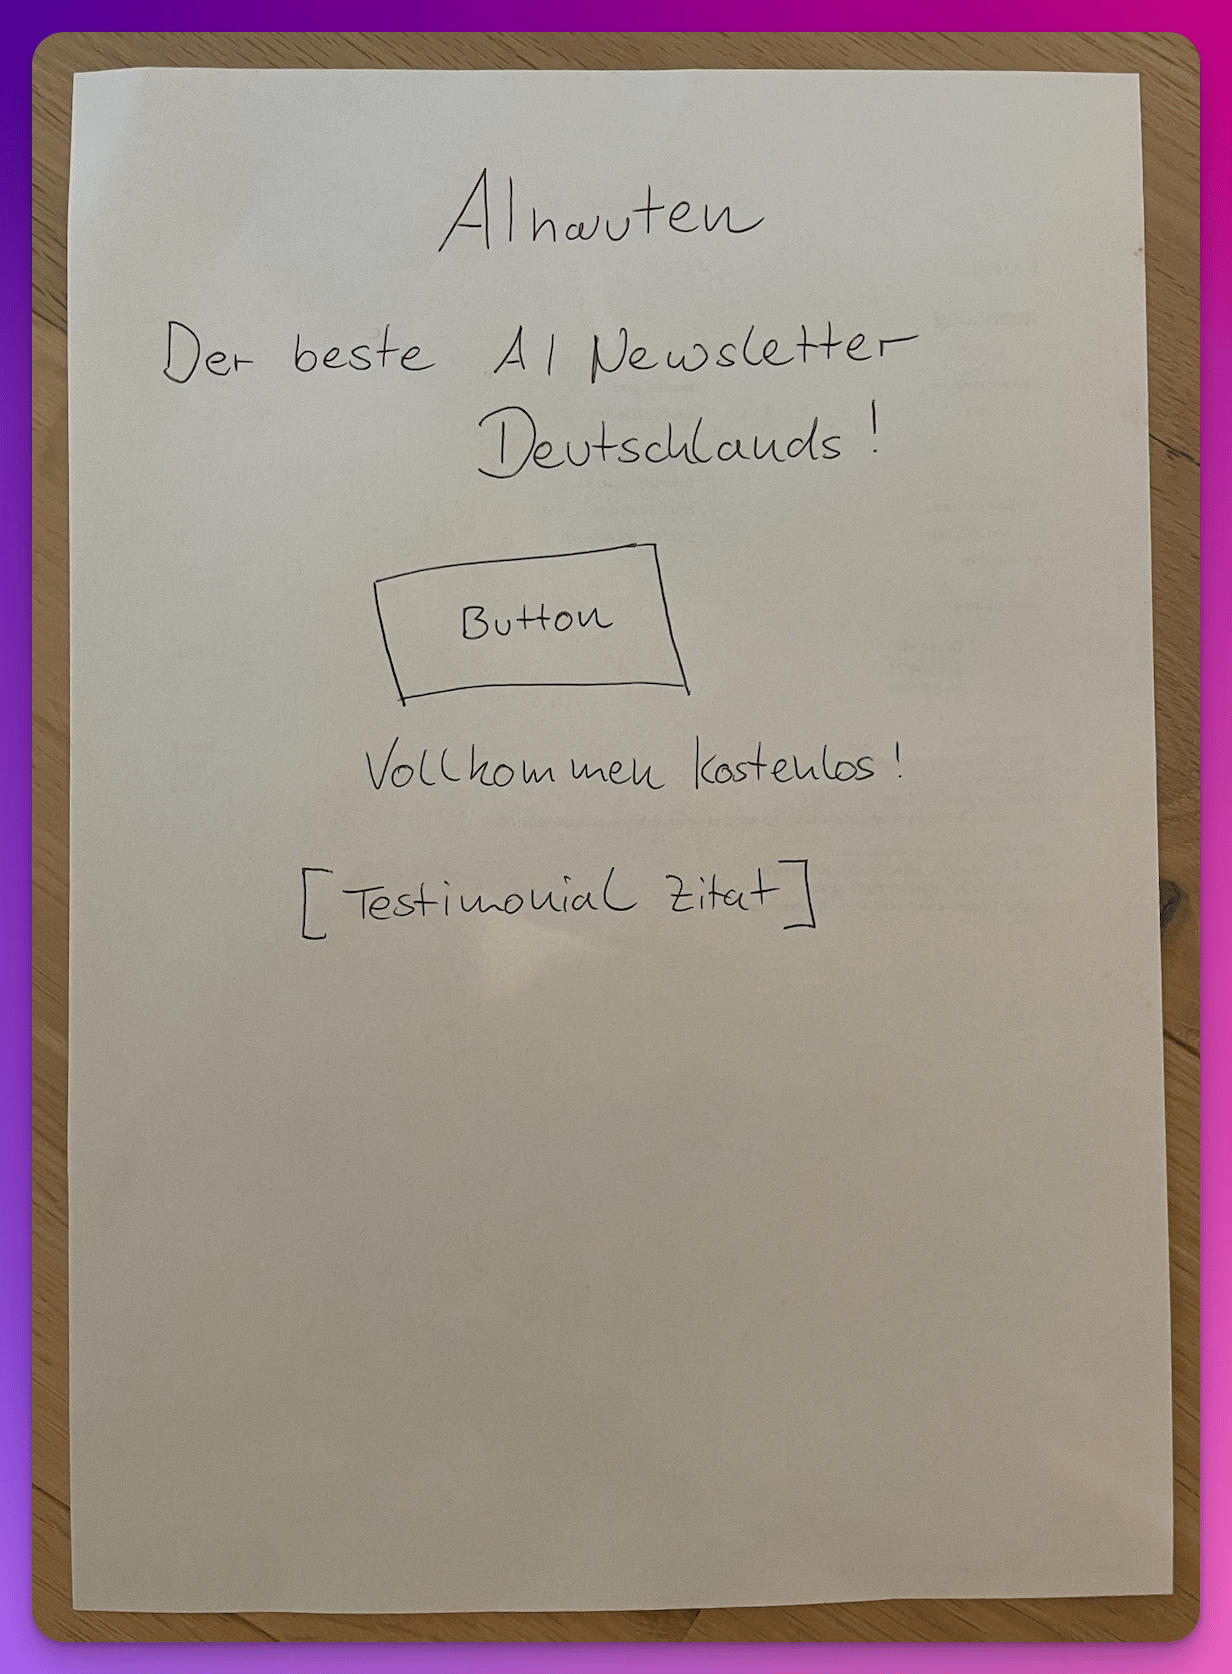 AInauten
Der beste AI Newsletter
Deutschlands!
Button
Vollkommen kostenlos!
[Testimonial Zitat]